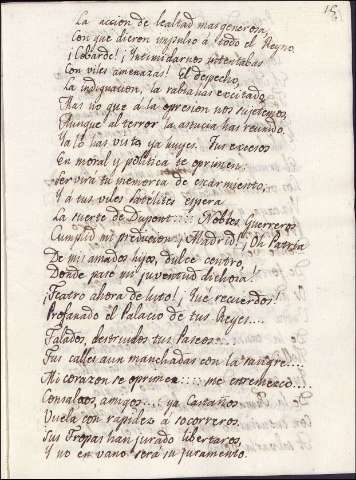 15
La accion de lealtad mas generosa,
Con que dieron impulso á todo el Reyno.
¡Cobarde! ¡Intimidarnos intentabas
Con viles amenazas! El despecho,
La indignacion, la rabia has excitado,
Mas no que á la opresion nos sujetemos,
Aunque al terror la astucia has reunido,
Ya lo has visto, ya huyes. Tus excesos
En moral y politica se oprimen:
Servirá tu memoria de escarmiento,
Y á tus viles satelites espera
La suerte de Dupont..... Nobles Guerreros
Cumplid mi prediccion. ¡Madrid! ¡Oh Patria
De mis amados hijos, dulce centro,
Donde pasé mi juventud dichosa!
¡Teatro ahora de luto! ¡Que recuerdos!
Profanado el Palacio de tus Reyes....
Talados, destruidos tus Paseos....
Tus calles aun manchadas con la sangre....
Mi corazon se oprime..... me enternezco....
Consolaos, amigos.... ya Castaños
Vuela con rapidez á socorreros.
Sus Tropas han jurado libertaros,
Y no en vano será su juramento.